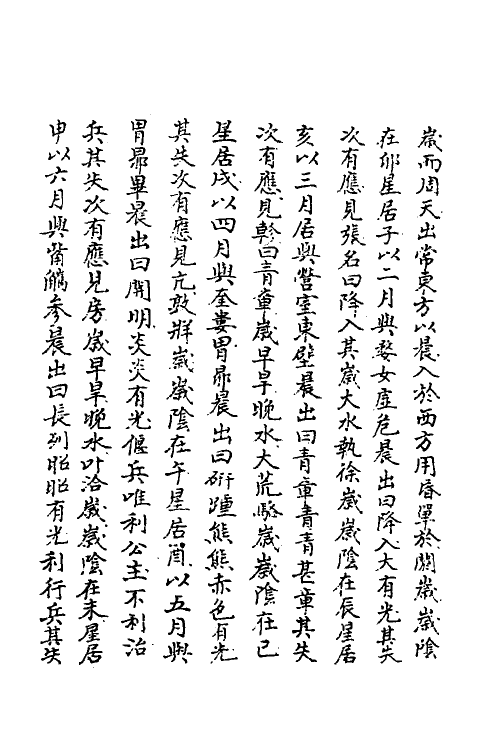 歲而周天出常東方以晨入於西方用昏單於閼歲歲陰
在卯星居子以二月與婺女虛危晨出曰降入大有光其失
次有應見張名曰降入其歲大水執徐歲歲陰在辰星居
亥以三月居與營室東壁晨出曰青章青青甚章其失
次有應見軫曰青章歲早旱晚水大荒駱歲歲陰在巳
星居戌以四月與奎婁胃昴晨出曰跰踵熊熊赤色有光
其失次有應見亢敦牂歲歲陰在午星居酉以五月與
胃昴畢晨出曰開明炎炎有光偃兵唯利公主不利治
兵其失次有應見房歲早旱晚水叶洽歲歲陰在未星居
申以六月與觜觿參晨出曰長列昭昭有光利行兵其失